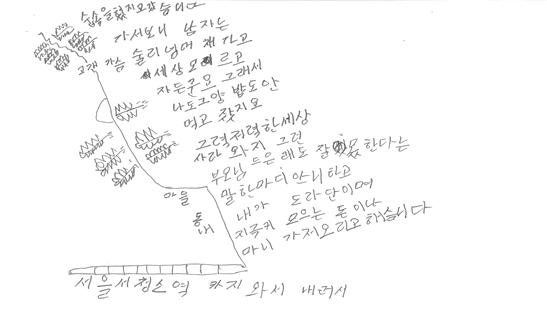 숩속을 헸지요갔습니다
가서보니 남자는
고개 가슴 술리넘어 재 가고
세상모르고
자든군요 그래서
나도그양 밥도안
먹고 잤지요
그럭저럭한세상
사라 와지 그런
부모님 드은래도 잘못한다는
말한마디 안니하고
내가 도라단이며
지극키 모으는 돈이나
아니 가저오리고 해습니다
마을
동내
서울서 청소역 까지 와서 내려서